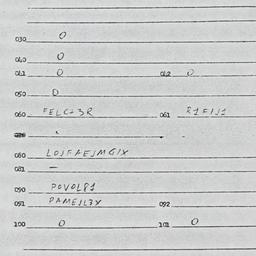 030 0
040 0
041 0 042 0
050 0
060 FELC23R 061 R1FIJ1
080 LOJFAEJMGIX
081 —
090 POVOL81
091 PAMEJL3Y 092
100 0 101 0